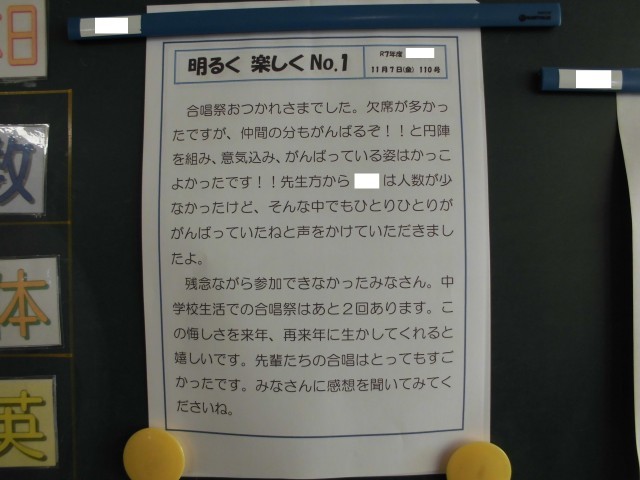 明るく 楽しくNo.1
R7年度
11月7日(金) 110号
合唱祭おつかれさまでした。欠席が多かっ
たですが、仲間の分もがんばるぞ！！と円陣
を組み、意気込み、がんばっている姿はかっこ
よかったです！！先生方から は人数が少
なかったけど、そんな中でもひとりひとりが
がんばっていたねと声をかけていただきまし
たよ。
残念ながら参加できなかったみなさん。中
学校生活での合唱祭はあと２回あります。こ
の悔しさを来年、再来年に生かしてくれると
嬉しいです。先輩たちの合唱はとってもすご
かったです。みなさんに感想を聞いてみてく
ださいね。
数
体
英